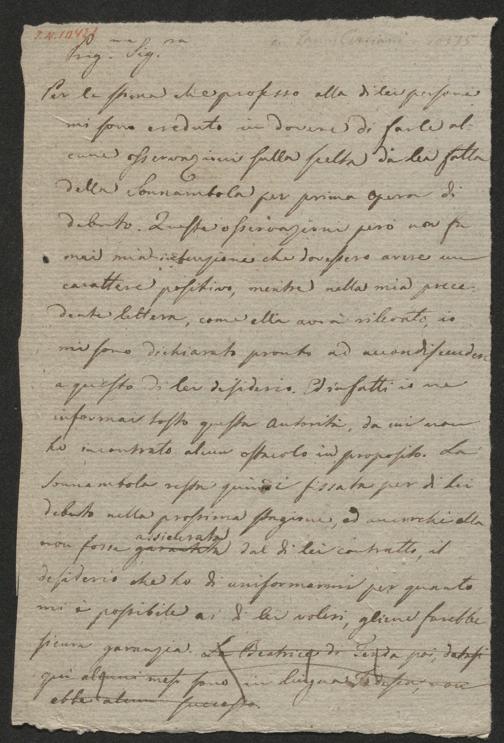 Preg.ma Sig.ra
Per la stima che professo alla di lei persona
mi sono creduto in dovere di farle al-
cune osservazioni sulla scelta da lei fatta
della Sonnambula per prima opera di
debuto. Queste osservazioni però non fu
mai mia intenzione che dovessero avere un
carattere positivo, mentre nella mia prece-
dente lettera, come ella avrà rilevato, io
mi sono dichiarato pronto ad accondiscendere
a questo di lei desiderio. Ed infatti io ne
informai tosto questa Autorità, da cui non
ho incontrato alcun ostacolo in proposito. La
Sonnambola resta quindi fissata per di lei
debuto nella prossima stagione, ed ancorchè ella
non fosse garantita assicurata dal di lei contratto, il
desiderio che ho di uniformarmi per quanto
mi è possibile ai di lei voleri, gliene farebbe
sicura garanzia. La Beatrice di Tenda poi, datasi
qui alcuni mesi sono in lingua Tedesca, non
ebbe alcun successo.